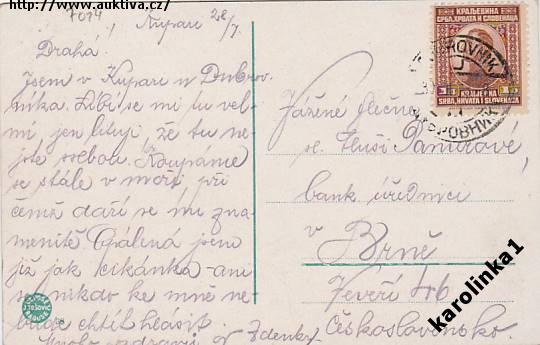 http://www.auktiva.cz/
7014
Kupari 28/7.
Drahá.
Jsem v Kupari u Dubrov
níka. Líbí se mi tu vel-
mi jen lituji že tu ne-
jste sebou. Koupáme
se stále v moři při
čemž daří se mi zna-
menitě. Opálená jsem
již jak cikánka - ani
nikdo ke mně ne-
bude chtít hlásit.
zdraví Zdenky
Vážené slečně
sl. Luši
bank. úřednici
v
Brně
Veveří 46
Československo.
КРАЉЕВИНА
СРБА, ХРВАТА И СЛОВЕНАЦА
1 1
KRALJEVINA
SRBA, HRVATA I SLOVENACA
DUBROVNIK
ДУБРОВНИК
J. TOŠOVIĆ
karolinka1